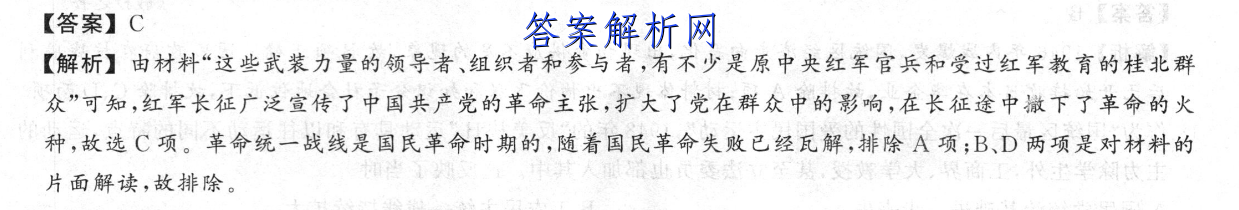 【答案】C
答案解析网
【解析】由材料“这些武装力量的领导者、组织者和参与者，有不少是原中央红军官兵和受过红军教育的桂北群
众”可知，红军长征广泛宣传了中国共产党的革命主张，扩大了党在群众中的影响，在长征途中撒下了革命的火
种，故选C项。革命统一战线是国民革命时期的，随着国民革命失败已经瓦解，排除A项；B、D两项是对材料的
片面解读，故排除。